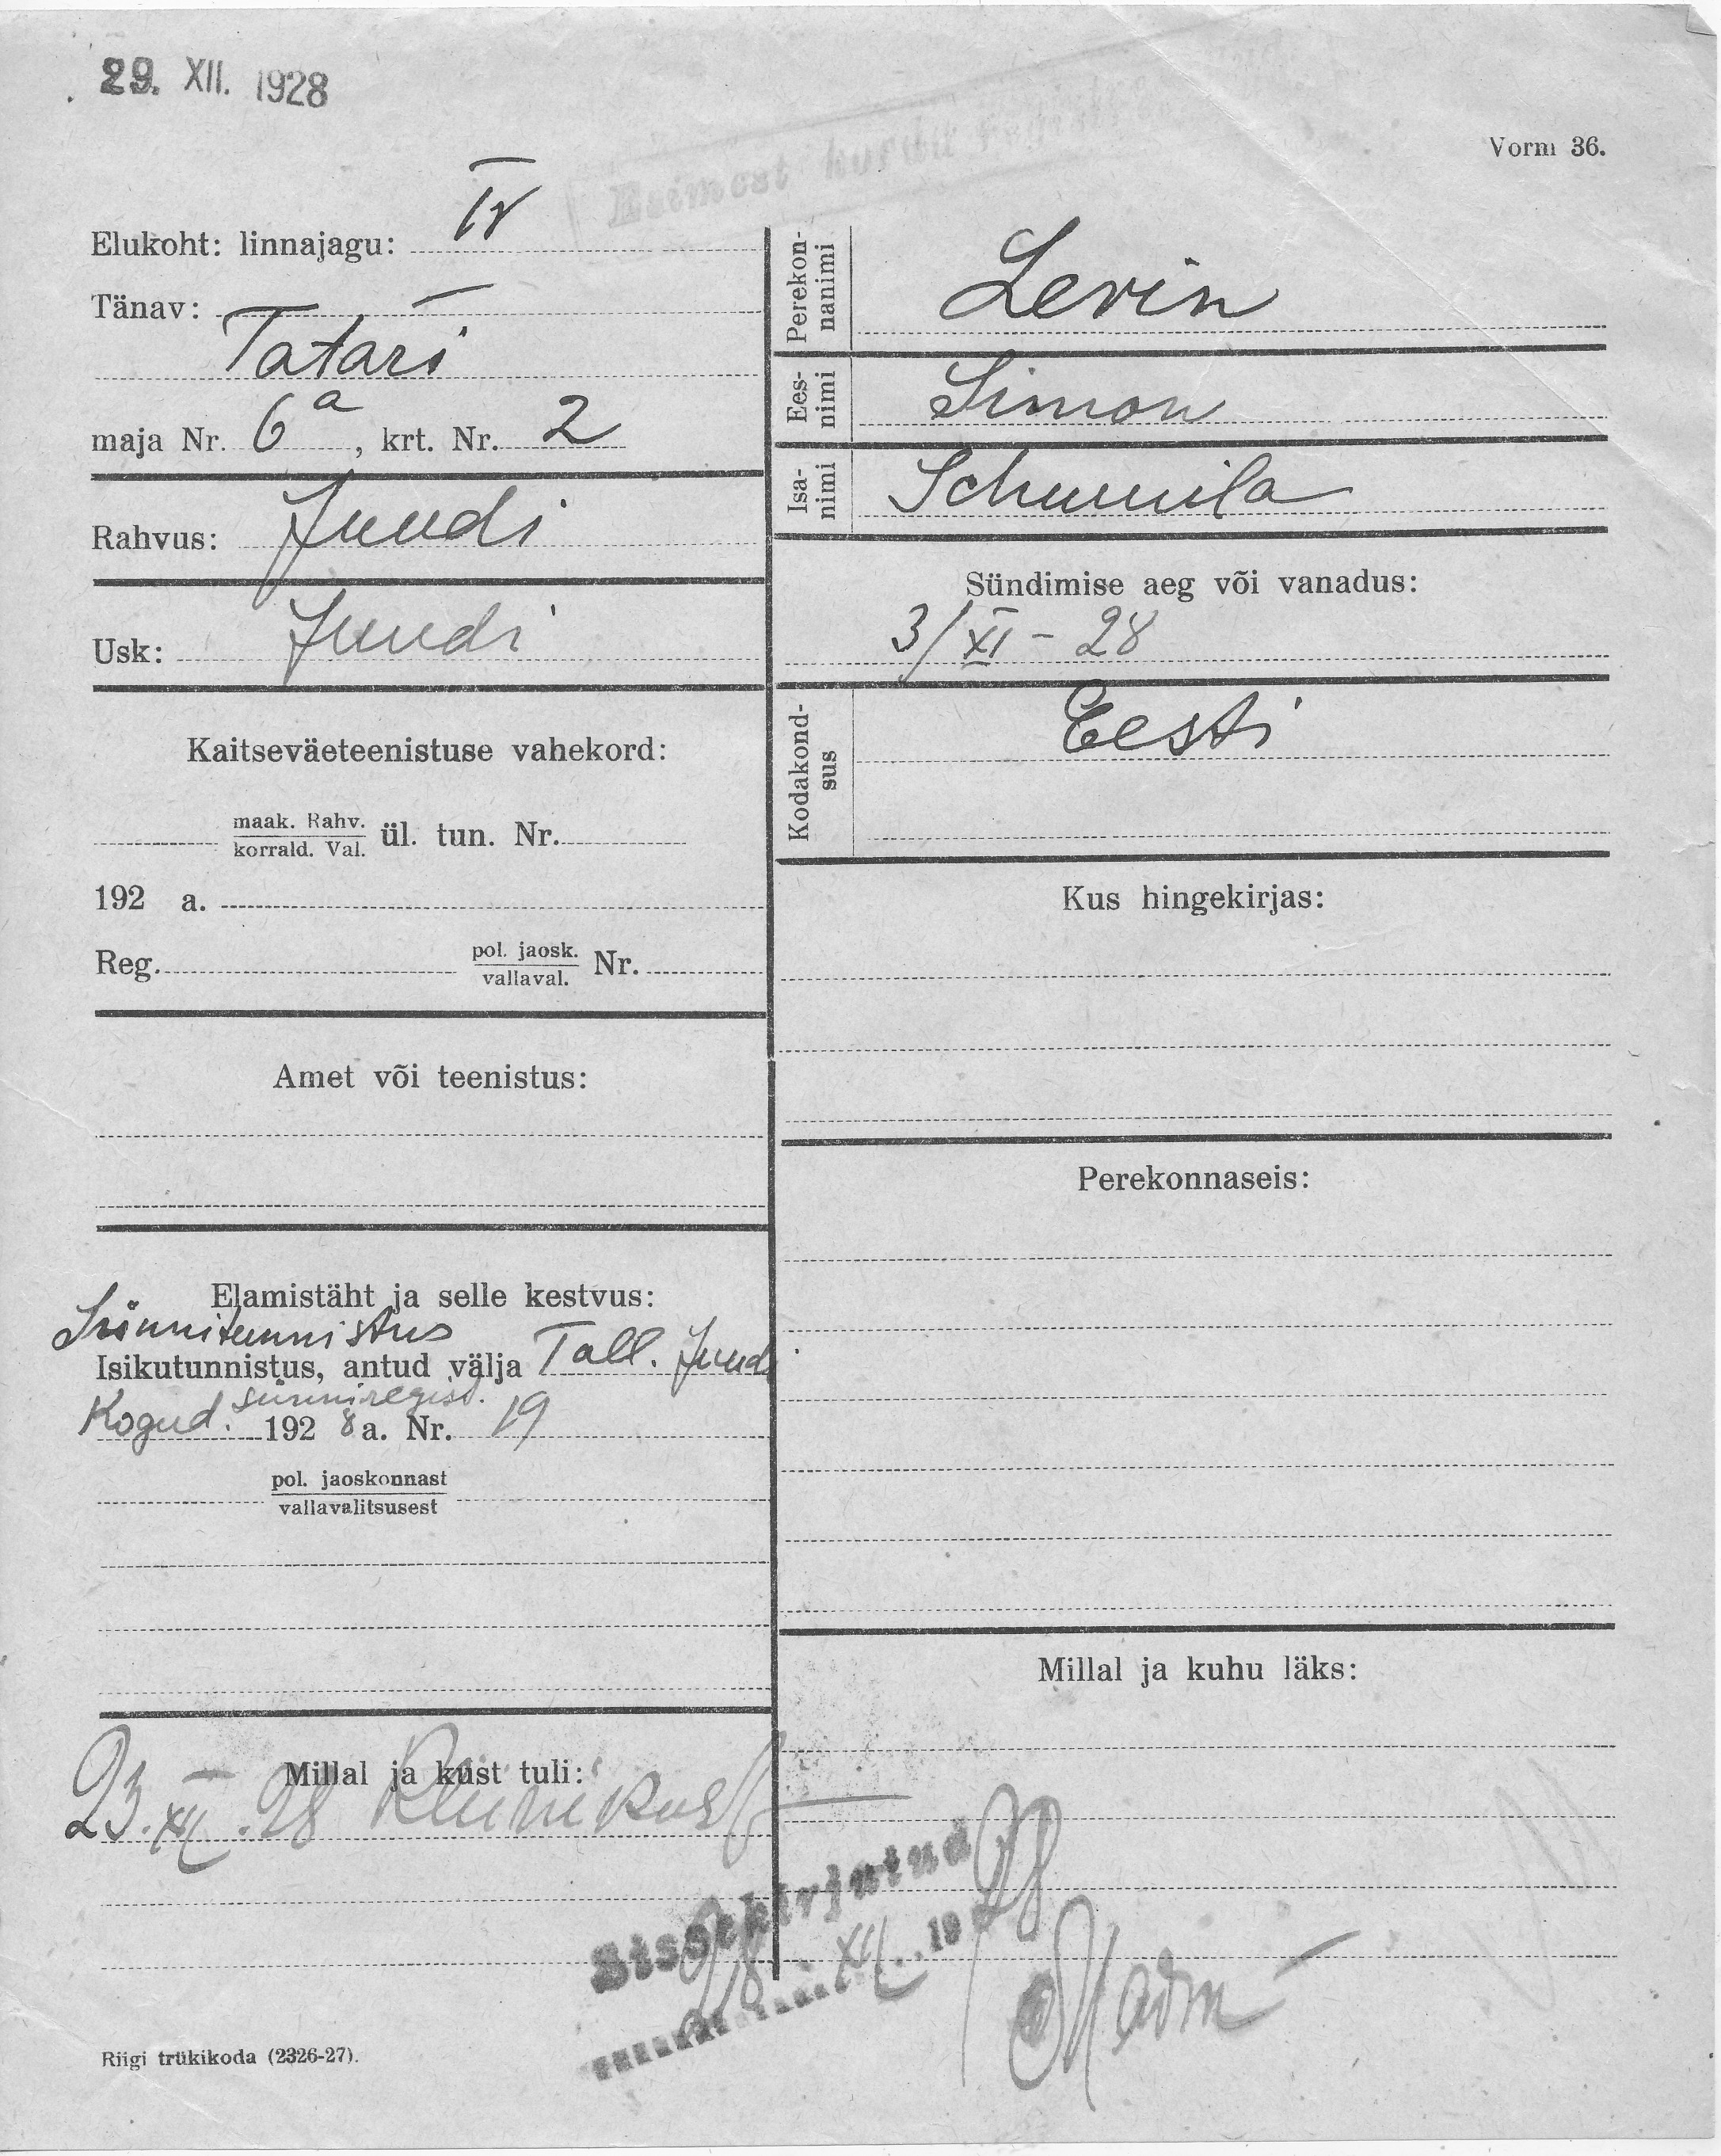 29. XII. 1928
Esimest kordit
Vorm 36.
Elukoht: linnajagu: IV
Tänav:
Tatari
maja Nr. 6a, krt. Nr. 2
Rahvus: Juudi
Usk: Juudi
Kaitseväeteenistuse vahekord:
maak. Rahv.
korrald. Val. ül. tun. Nr.
192 a.
Reg. pol. jaosk.
vallaval. Nr.
Amet või teenistus:
Elamistäht ja selle kestvus:
Sünnitunnistus
Isikutunnistus, antud välja Tall. Juudi
Kogud. sünniregist.
1928 a. Nr. 19
pol. jaoskonnast
vallavalitsusest
Millal ja kust tuli:
23. XII. 28 Kliinikust
Riigi trükikoda (2326-27).
Perekon-
nanimi
Levin
Ees-
nimi
Simon
Isa-
nimi
Schumila
Sündimise aeg või vanadus:
3/XI - 28
Kodakond-
sus
Eesti
Kus hingekirjas:
Perekonnaseis:
Millal ja kuhu läks:
Sissekirjutud
28. XII. 1928